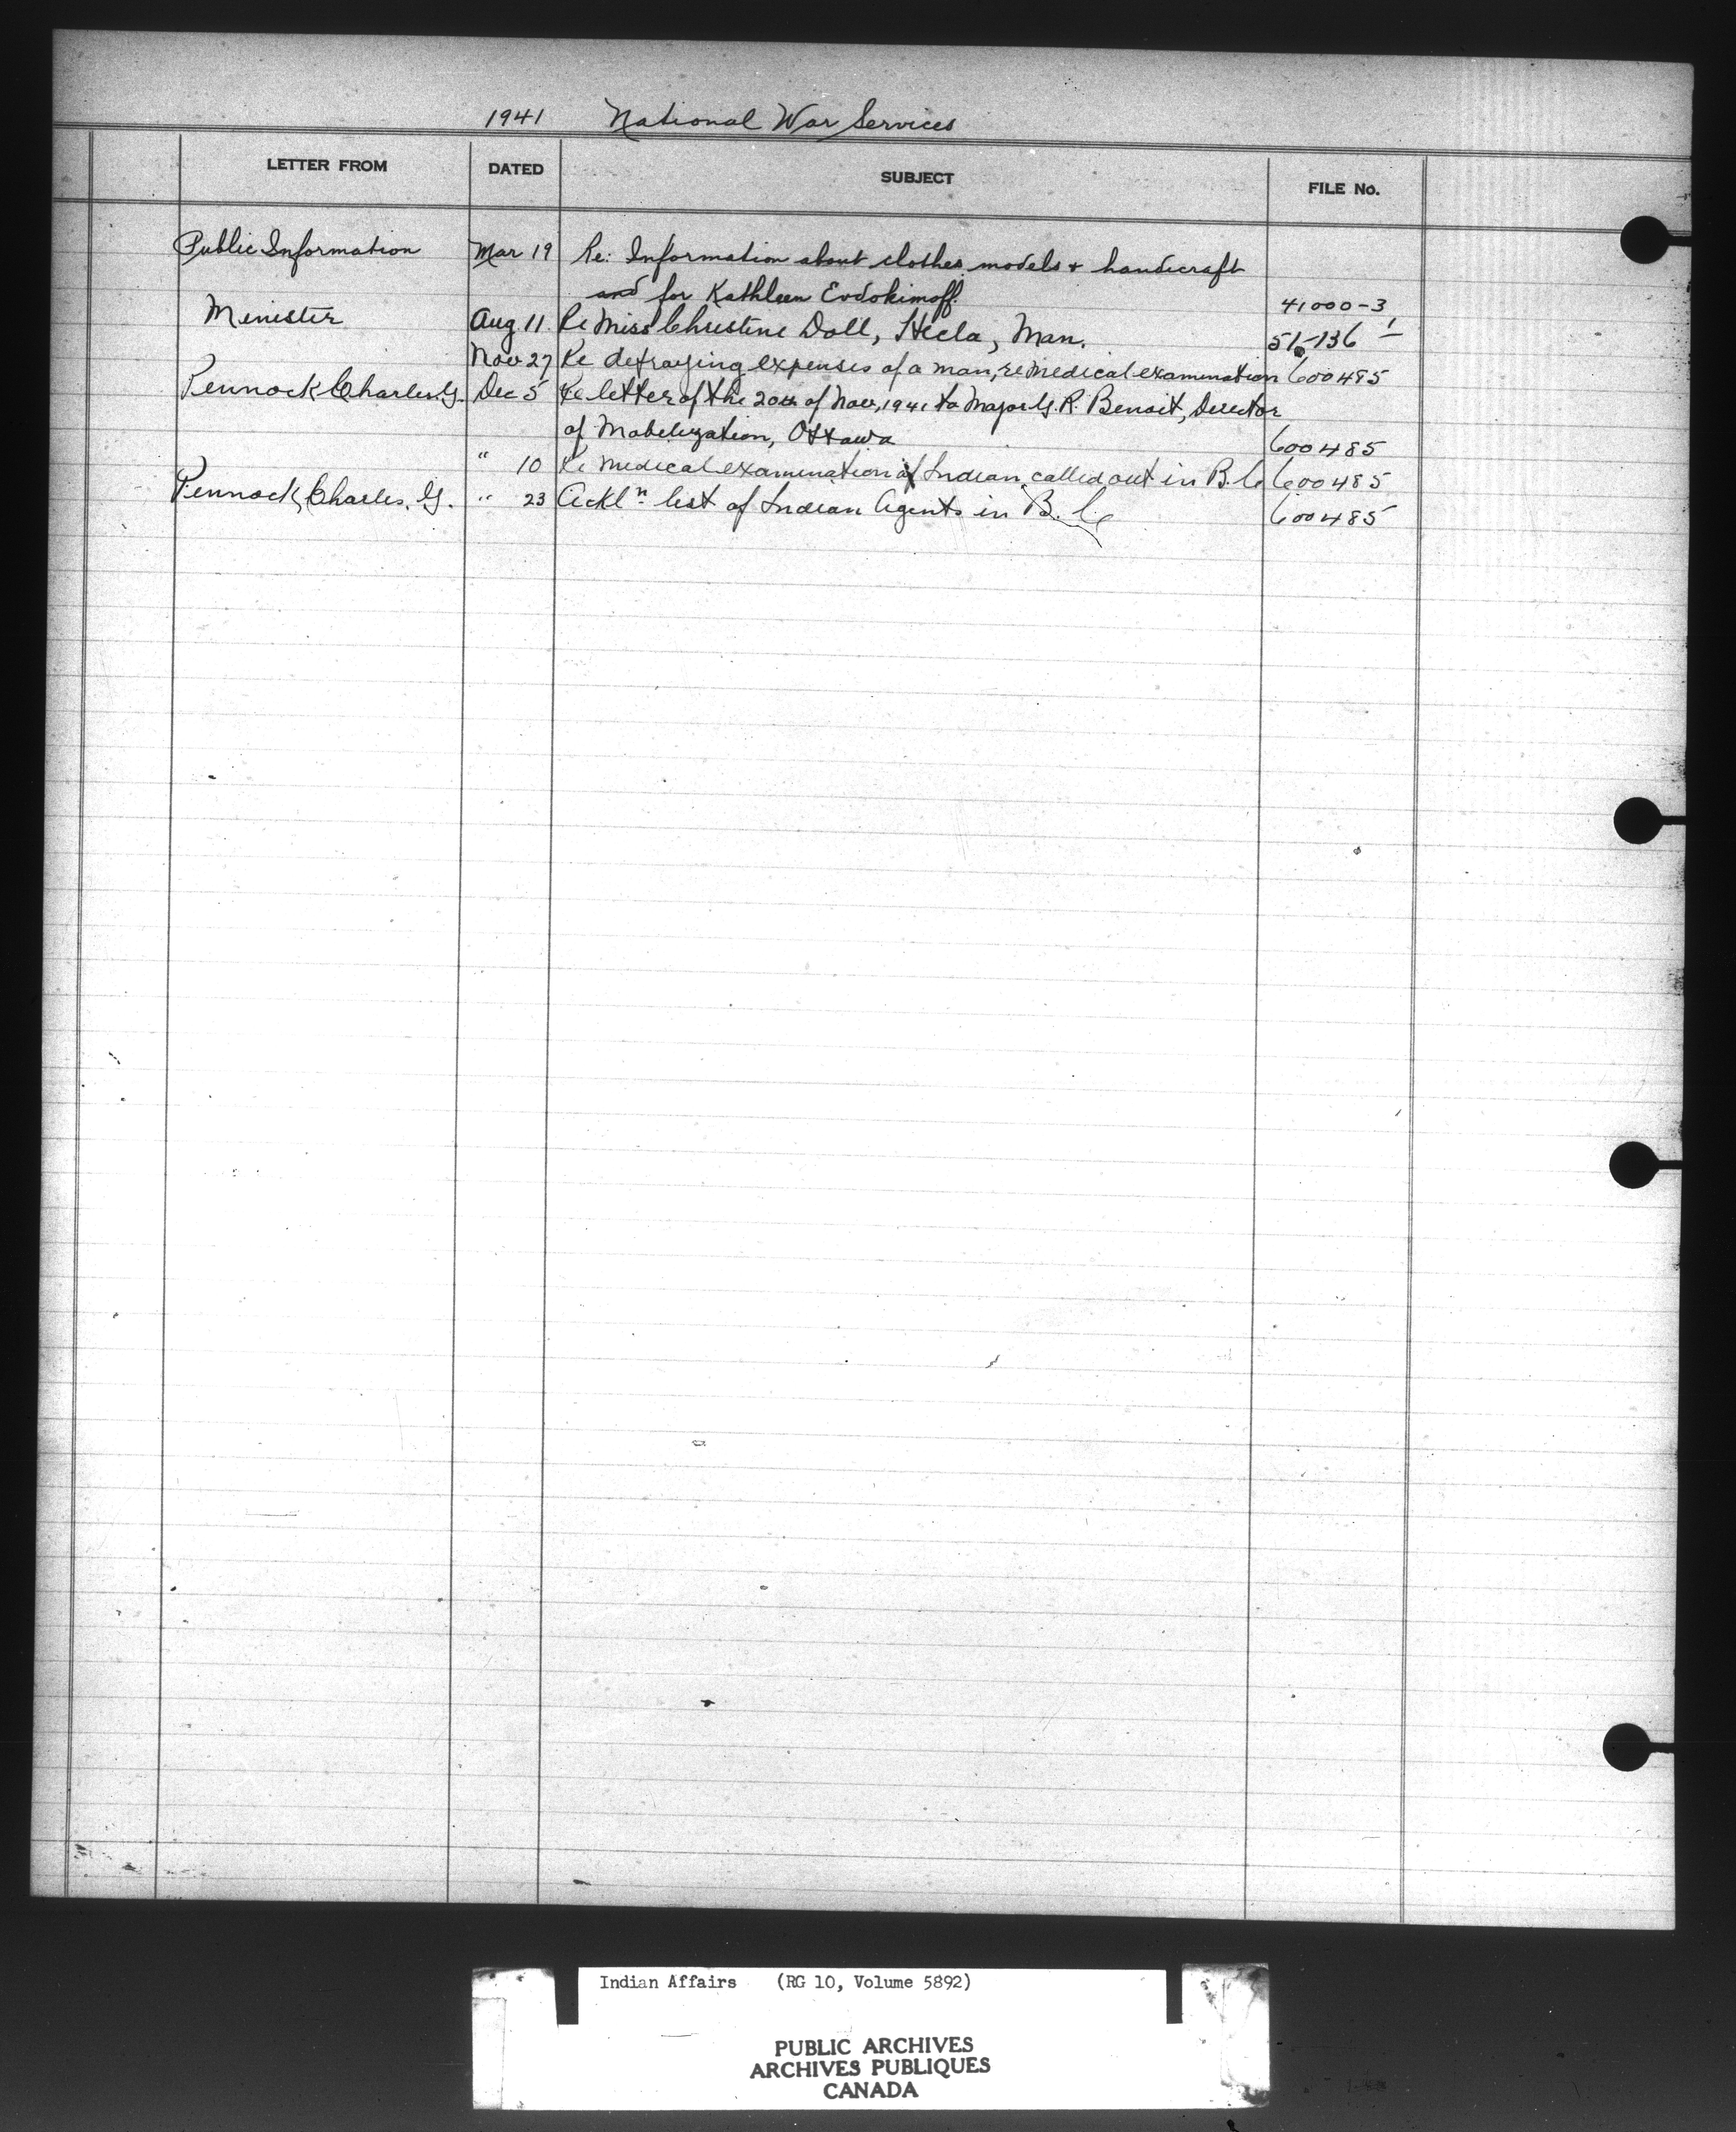 1941 National War Services
LETTER FROM DATED SUBJECT FILE No.
Public Information Mar 19 Re: Information about clothes models + handicraft
and for Kathleen Evdokimoff. 41000-3
Minister Aug. 11. Re Miss Christine Doll, Hecla, Man. 51-136
Nov 27 Re defraying expenses of a man, re medical examination 600485
Pennock Charles. G. Dec 5 Re letter of the 20th of Nov, 1941 to Major G. R. Benoit, Director
of Mobilization, Ottawa 600485
" 10 Re medical examination of Indian called out in B.C. 600485
Pennock, Charles. G. " 23 Ackl n list of Indian Agents in B.C. 600485
Indian Affairs (RG 10, Volume 5892)
PUBLIC ARCHIVES
ARCHIVES PUBLIQUES
CANADA